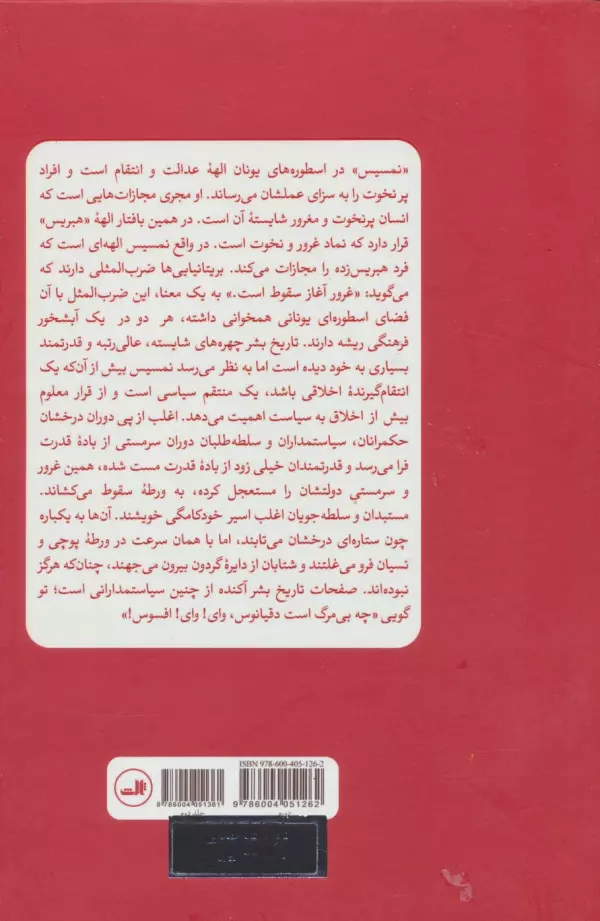 «نمسیس» در اسطوره‌های یونان الههٔ عدالت و انتقام است و افراد
پرنخوت را به سزای عملشان می‌رساند. او مجری مجازات‌هایی است که
انسان پرنخوت و مغرور شایستهٔ آن است. در همین بافتار الههٔ «هبریس»
قرار دارد که نماد غرور و نخوت است. در واقع نمسیس الهه‌ای است که
فرد هبریس‌زده را مجازات می‌کند. بریتانیایی‌ها ضرب‌المثلی دارند که
می‌گوید: «غرور آغاز سقوط است.» به یک معنا، این ضرب‌المثل با آن
فضای اسطوره‌ای یونانی همخوانی داشته، هر دو در یک آبشخور
فرهنگی ریشه دارند. تاریخ بشر چهره‌های شایسته، عالی‌رتبه و قدرتمند
بسیاری به خود دیده است اما به نظر می‌رسد نمسیس بیش از آن‌که یک
انتقام‌گیرندهٔ اخلاقی باشد، یک منتقم سیاسی است و از قرار معلوم
بیش از اخلاق به سیاست اهمیت می‌دهد. اغلب از پی دوران درخشان
حکمرانان، سیاستمداران و سلطه‌طلبان دوران سرمستی از بادهٔ قدرت
فرا می‌رسد و قدرتمندان خیلی زود از بادهٔ قدرت مست شده، همین غرور
و سرمستیِ دولتشان را مستعجل کرده، به ورطهٔ سقوط می‌کشاند.
مستبدان و سلطه‌جویان اغلب اسیر خودکامگی خویشند. آن‌ها به یکباره
چون ستاره‌ای درخشان می‌تابند، اما با همان سرعت در ورطهٔ پوچی و
نسیان فرو می‌غلتند و شتابان از دایرهٔ گردون بیرون می‌جهند، چنان‌که هرگز
نبوده‌اند. صفحات تاریخ بشر آکنده از چنین سیاستمدارانی است؛ تو
گویی «چه بی‌مرگ است دقیانوس، وای! وای! افسوس!»
ISBN 978-600-405-126-2
ثالث
9 786004 051361
9 786004 051262
جلد دوم